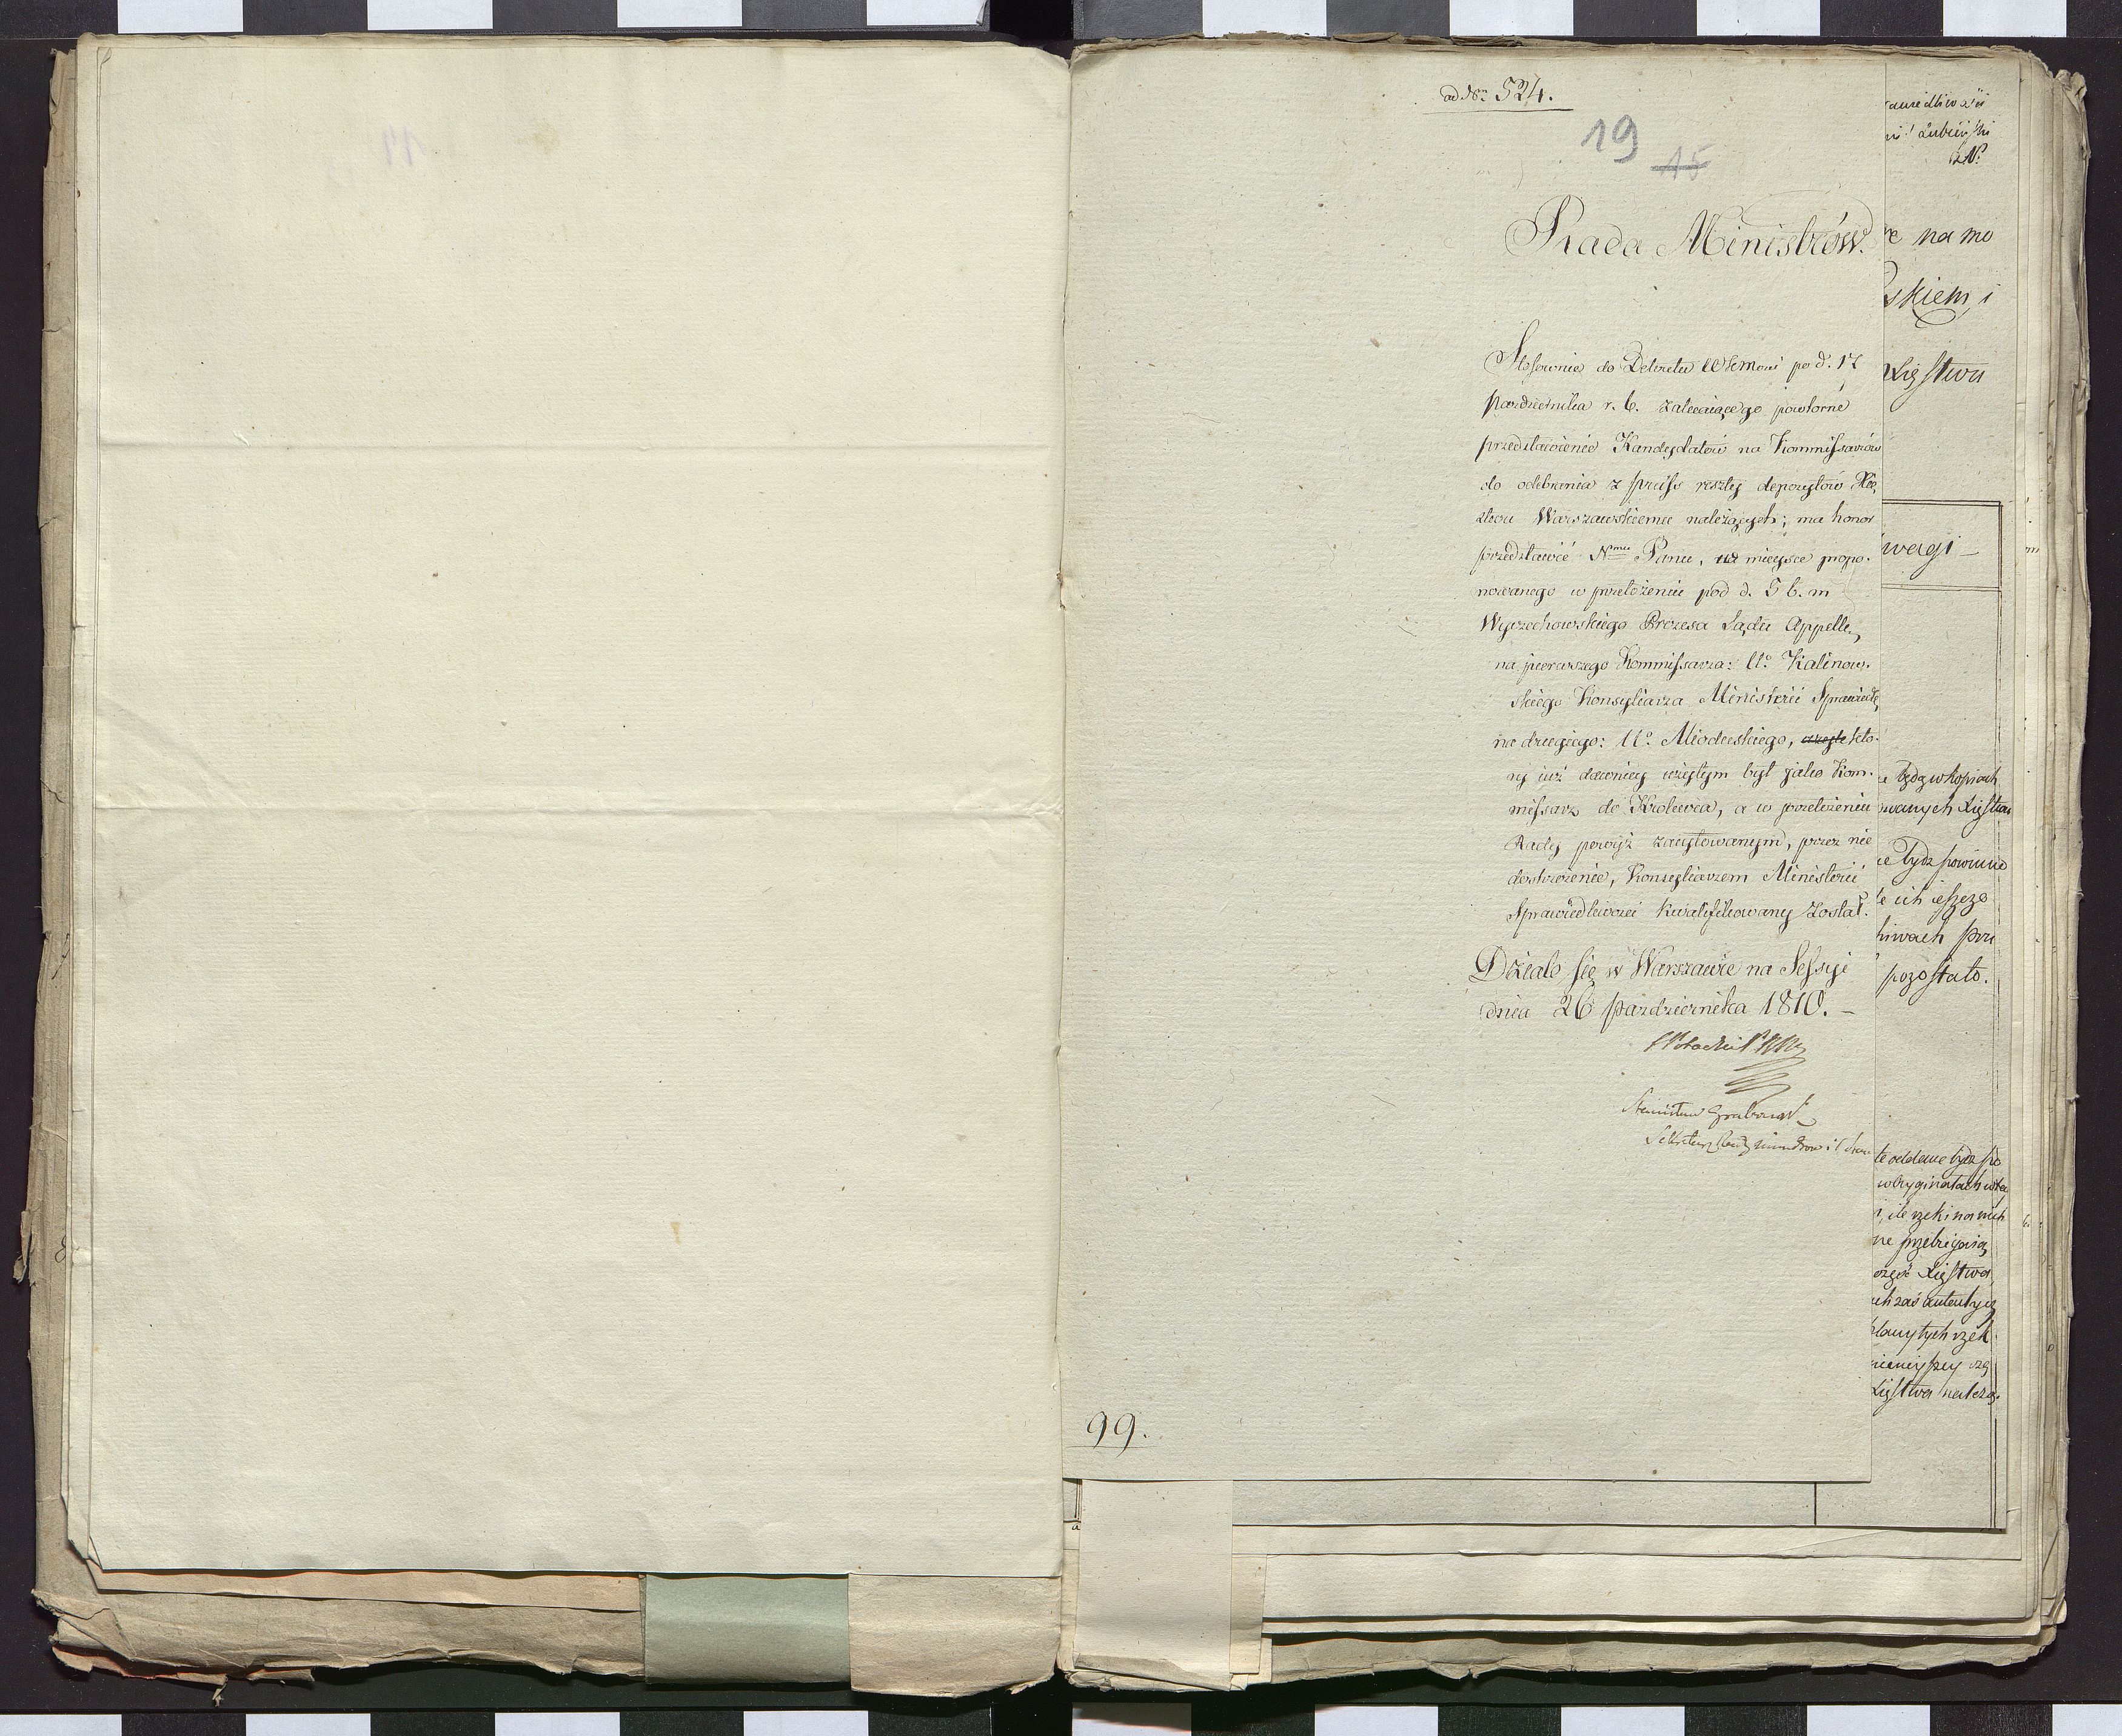 ad No 524.
19
15
Rada Ministrów.
Stosownie do Dekretu pod d. 17
pazdziernika r. b. zalecaiącego powtorne
przedstawienie Kandydatów na Kommissarzów
do odebrania z pruss reszty depozytów Xię
ztwu Warszawskiemu należących; ma honor
przedstawić Nmu Panu, na mieysce propo-
nowanego w przełożeniu pod d. 5 b. m
Wyczechowskiego Prezesa Sądu Appell.
na pierwszego Kommissarza: Ur. Kalinow-
skiego Konsyliarza Ministerii Sprawiedl.
na drugiego: Ur. Mioduskiego, któ-
ry iuż dawniey użytym był jako Kom-
missarz do Krolewca, a w przełożeniu
Rady powyż zacytowanym, przez nie
dostrzeżenie, Konsyliarzem Ministerii
Sprawiedliwości kwalifikowany został.
Działo się w Warszawie na Sessyi
dnia 26 pazdziernika 1810. –
Stanisław Grabowski
Sekretarz Rady Ministrow i Stanu
99.
na mo
skiem, i
Xięstwa
wagi –
będą w kopiach
wanych Xięstwa
bydź powinne
ich ieszcze
hiwach pru
pozostało.
te oddane bydź po
w oryginałach
ile rzeki na nich
ne przebiegaią
Xięstwa,
uch zaś autentycz
plany tych rzek
Xięstwa należą.